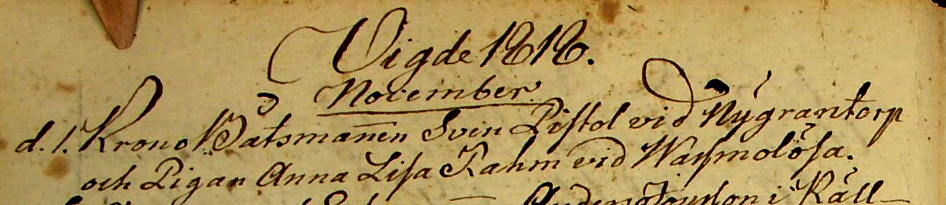 Vigde 1818.
November
d. 1. Krono Båtsmanen Sven Pistol vid Nygrantorp
och Pigan Anna Lisa Rahm vid Warmolösa.
Anders Jonsson i Käll